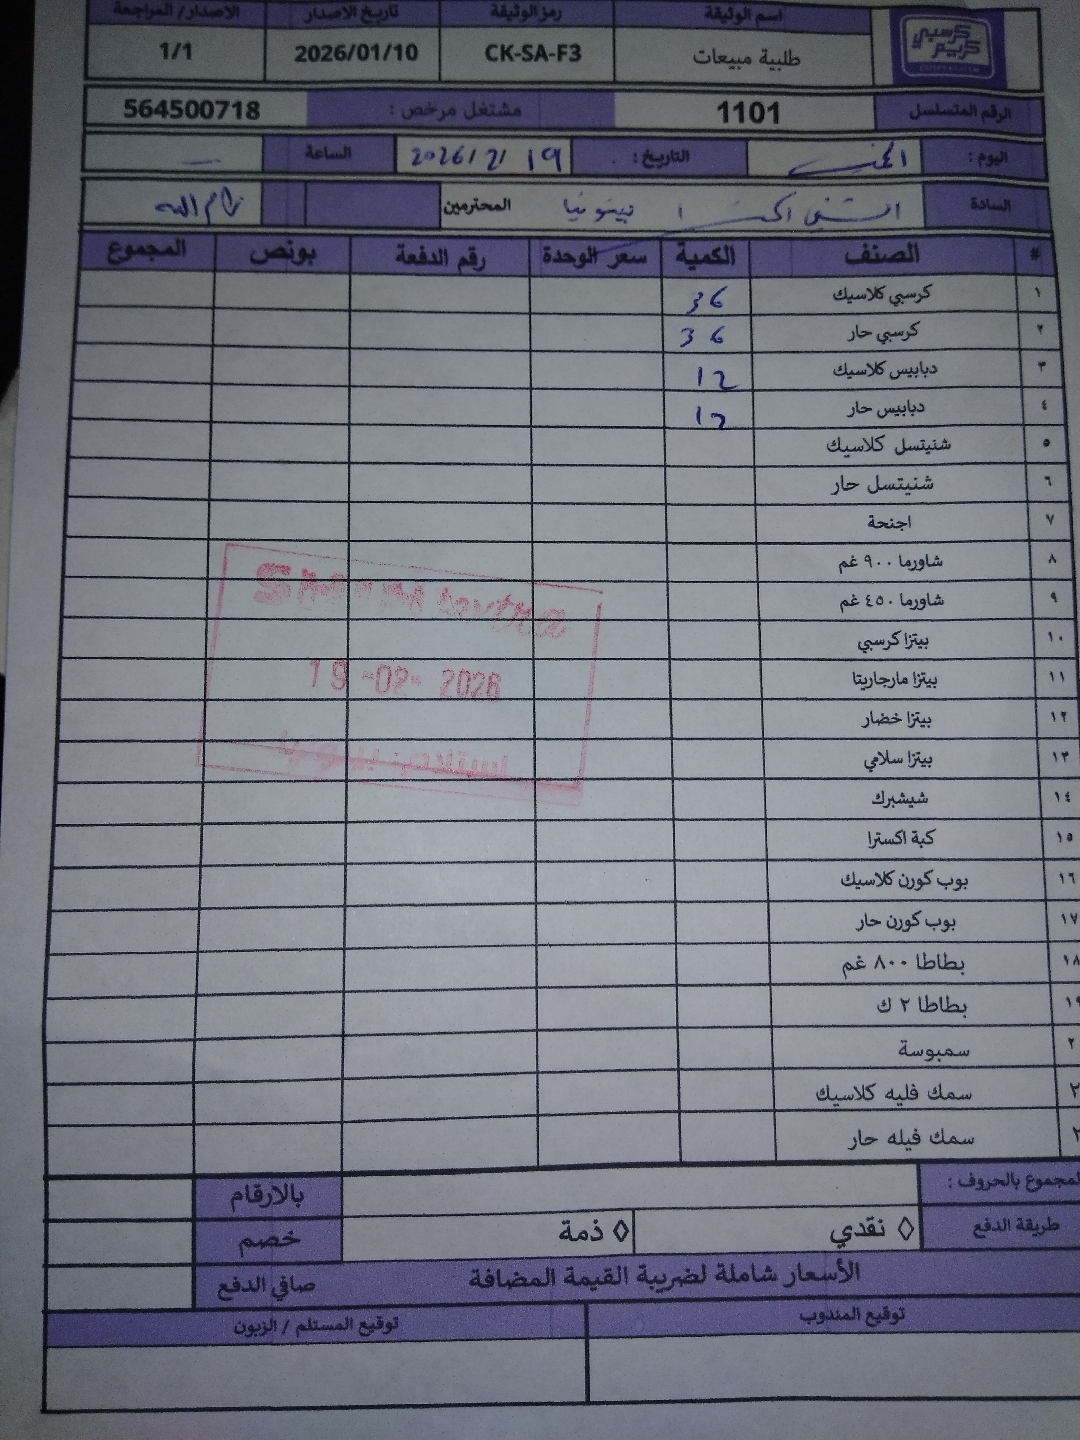 كرسبي كريم
اسم الوثيقة رمز الوثيقة تاريخ الاصدار الاصدار/ المراجعة
طلبية مبيعات CK-SA-F3 2026/01/10 1/1
الرقم المتسلسل 1101 مشتغل مرخص : 564500718
اليوم : التاريخ : 19 /2 /2026 الساعة
السادة المحترمين رام الله
# الصنف الكمية سعر الوحدة رقم الدفعة بونص المجموع
١ كرسبي كلاسيك 36
٢ كرسبي حار 36
٣ دبابيس كلاسيك 12
٤ دبابيس حار 12
٥ شنيتسل كلاسيك
٦ شنيتسل حار
٧ اجنحة
٨ شاورما ٩٠٠ غم
٩ شاورما ٤٥٠ غم
١٠ بيتزا كرسبي
١١ بيتزا مارجاريتا
١٢ بيتزا خضار
١٣ بيتزا سلامي
١٤ شيشبرك
١٥ كبة اكسترا
١٦ بوب كورن كلاسيك
١٧ بوب كورن حار
١٨ بطاطا ٨٠٠ غم
١٩ بطاطا ٢ ك
٢ سمبوسة
٢ سمك فليه كلاسيك
٢ سمك فيله حار
19 -02- 2026
استلام
المجموع بالحروف : بالارقام
طريقة الدفع ◊ نقدي ◊ ذمة خصم
الأسعار شاملة لضريبة القيمة المضافة صافي الدفع
توقيع المندوب توقيع المستلم / الزبون